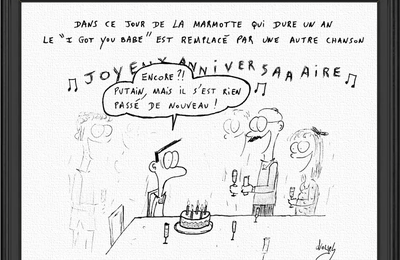 DANS CE JOUR DE LA MARMOTTE QUI DURE UN AN
LE "I GOT YOU BABE" EST REMPLACÉ PAR UNE AUTRE CHANSON
JOYEUX ANNIVERSAAAIRE
ENCORE?!
PUTAIN, MAIS IL S'EST RIEN
PASSÉ DE NOUVEAU !